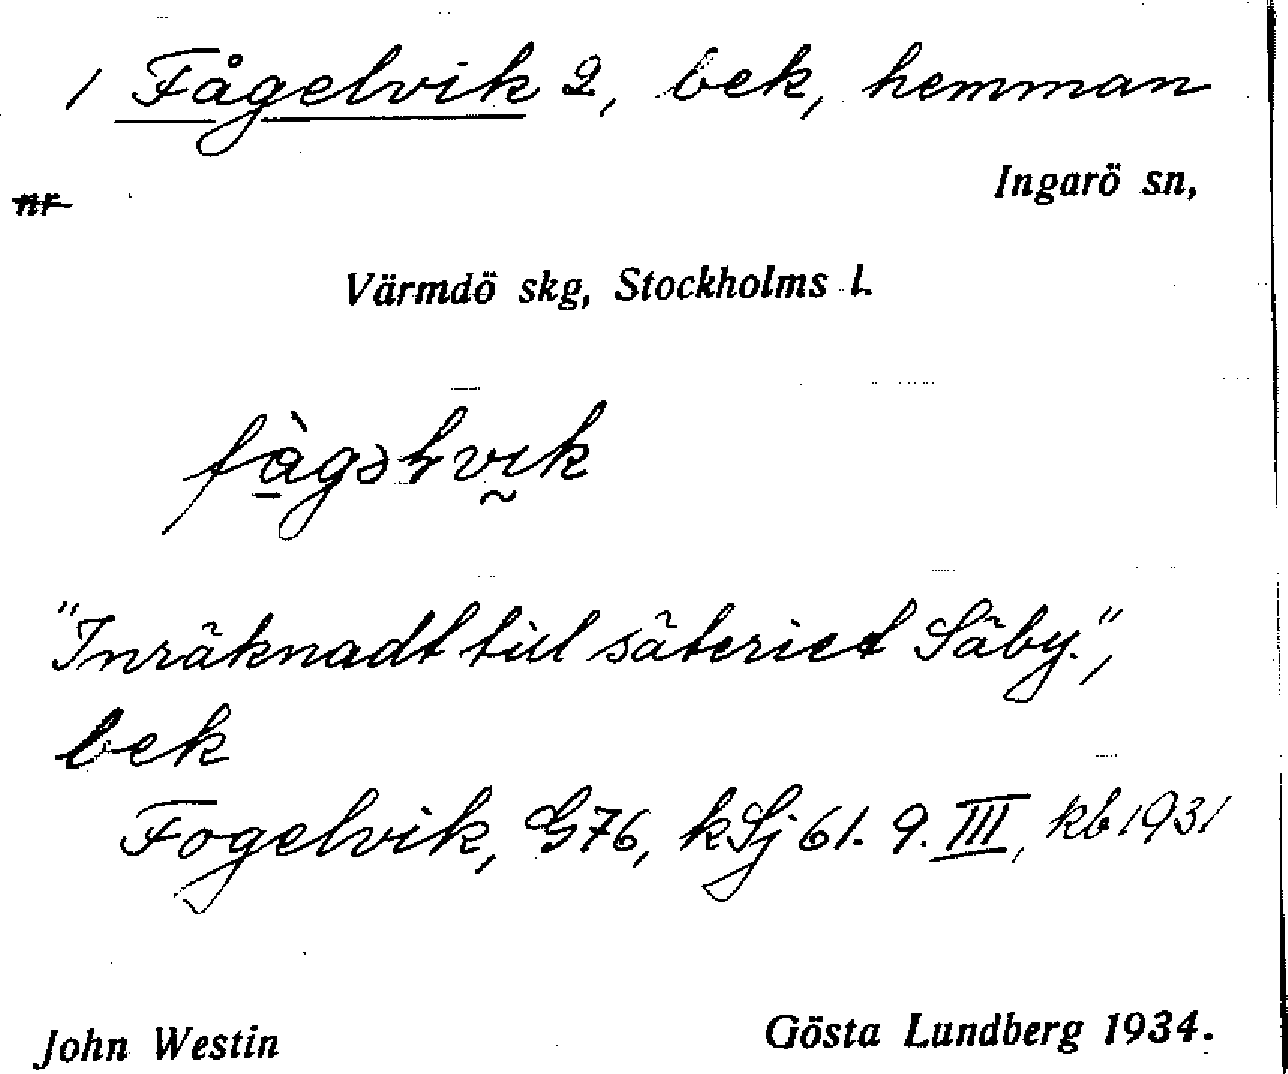 1 Fågelvik 2, bek, hemman
Ingarö sn,
nr
Värmdö skg, Stockholms l.
"Inräknadt till säteriet Säby.",
bek
Fogelvik, G76, kSj 61. 9. III, kb 1931
John Westin
Gösta Lundberg 1934.